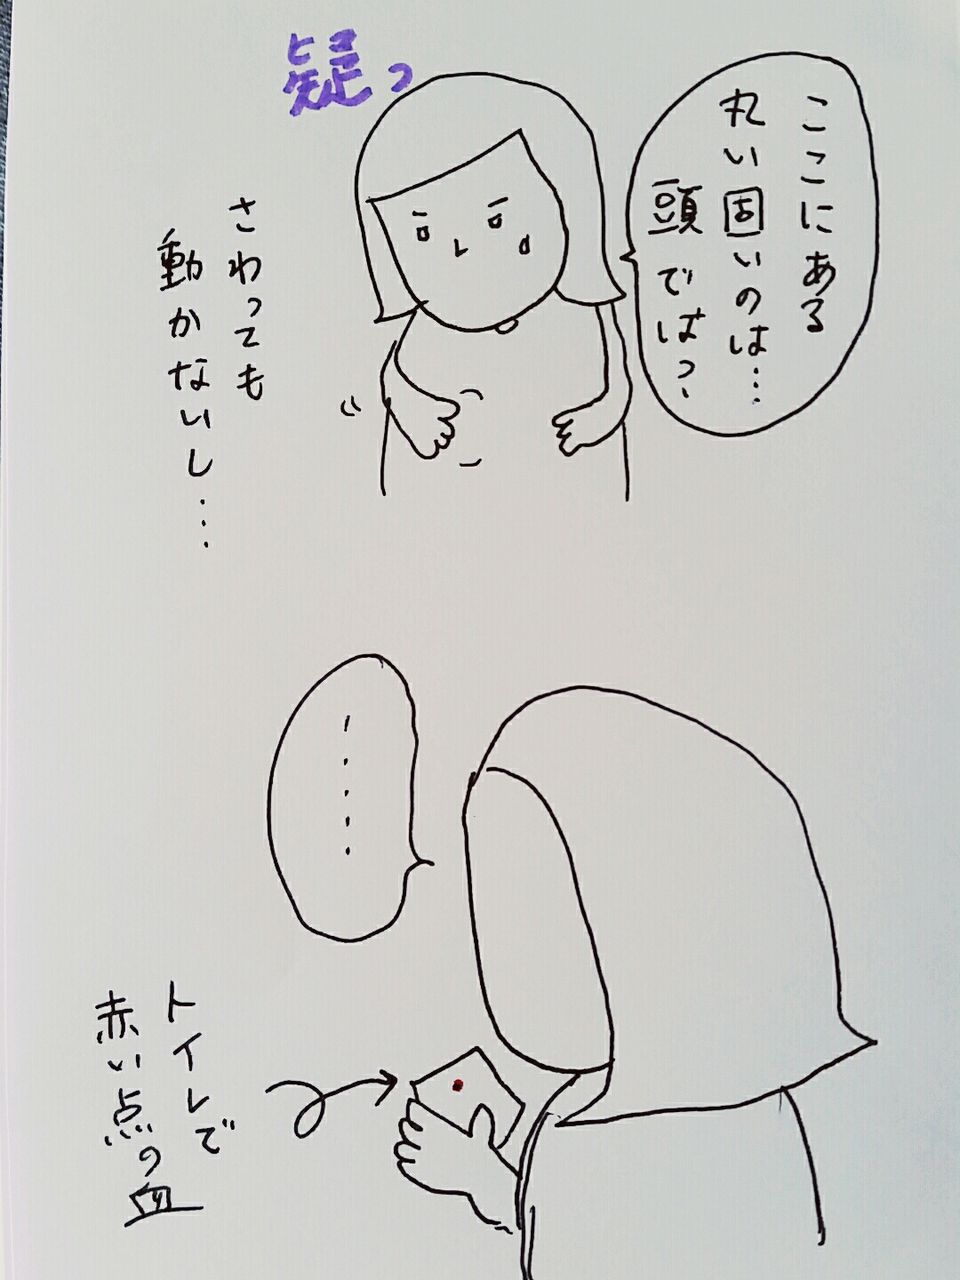 疑っ
ここにある
丸い固いのは…
頭では?
さわっても
動かないし…
………
トイレで
赤い点の
血